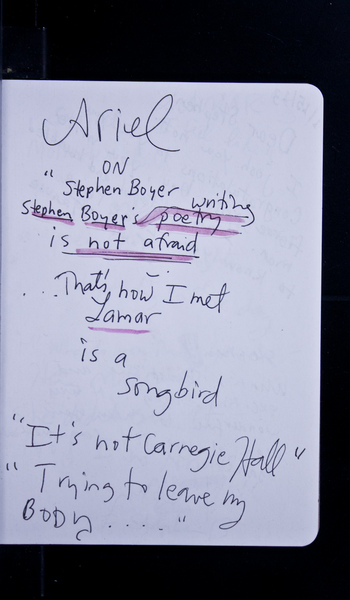 Ariel
ON
" Stephen Boyer
writing
Stephen Boyer's poetry
is not afraid
...That's how I met
Lamar
is a
songbird
"It's not Carnegie Hall"
"Trying to leave my
BODY...."